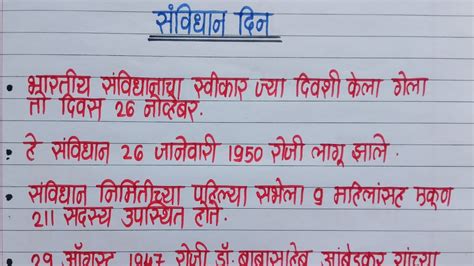 संविधान दिन
• भारतीय संविधानाचा स्वीकार ज्या दिवशी केला गेला
तो दिवस 26 नोव्हेंबर.
• हे संविधान 26 जानेवारी 1950 रोजी लागू झाले.
• संविधान निर्मितीच्या पहिल्या सभेला 9 महिलांसह एकूण
211 सदस्य उपस्थित होते.
• 29 ऑगस्ट 1947 रोजी डॉ. बाबासाहेब आंबेडकर यांच्या